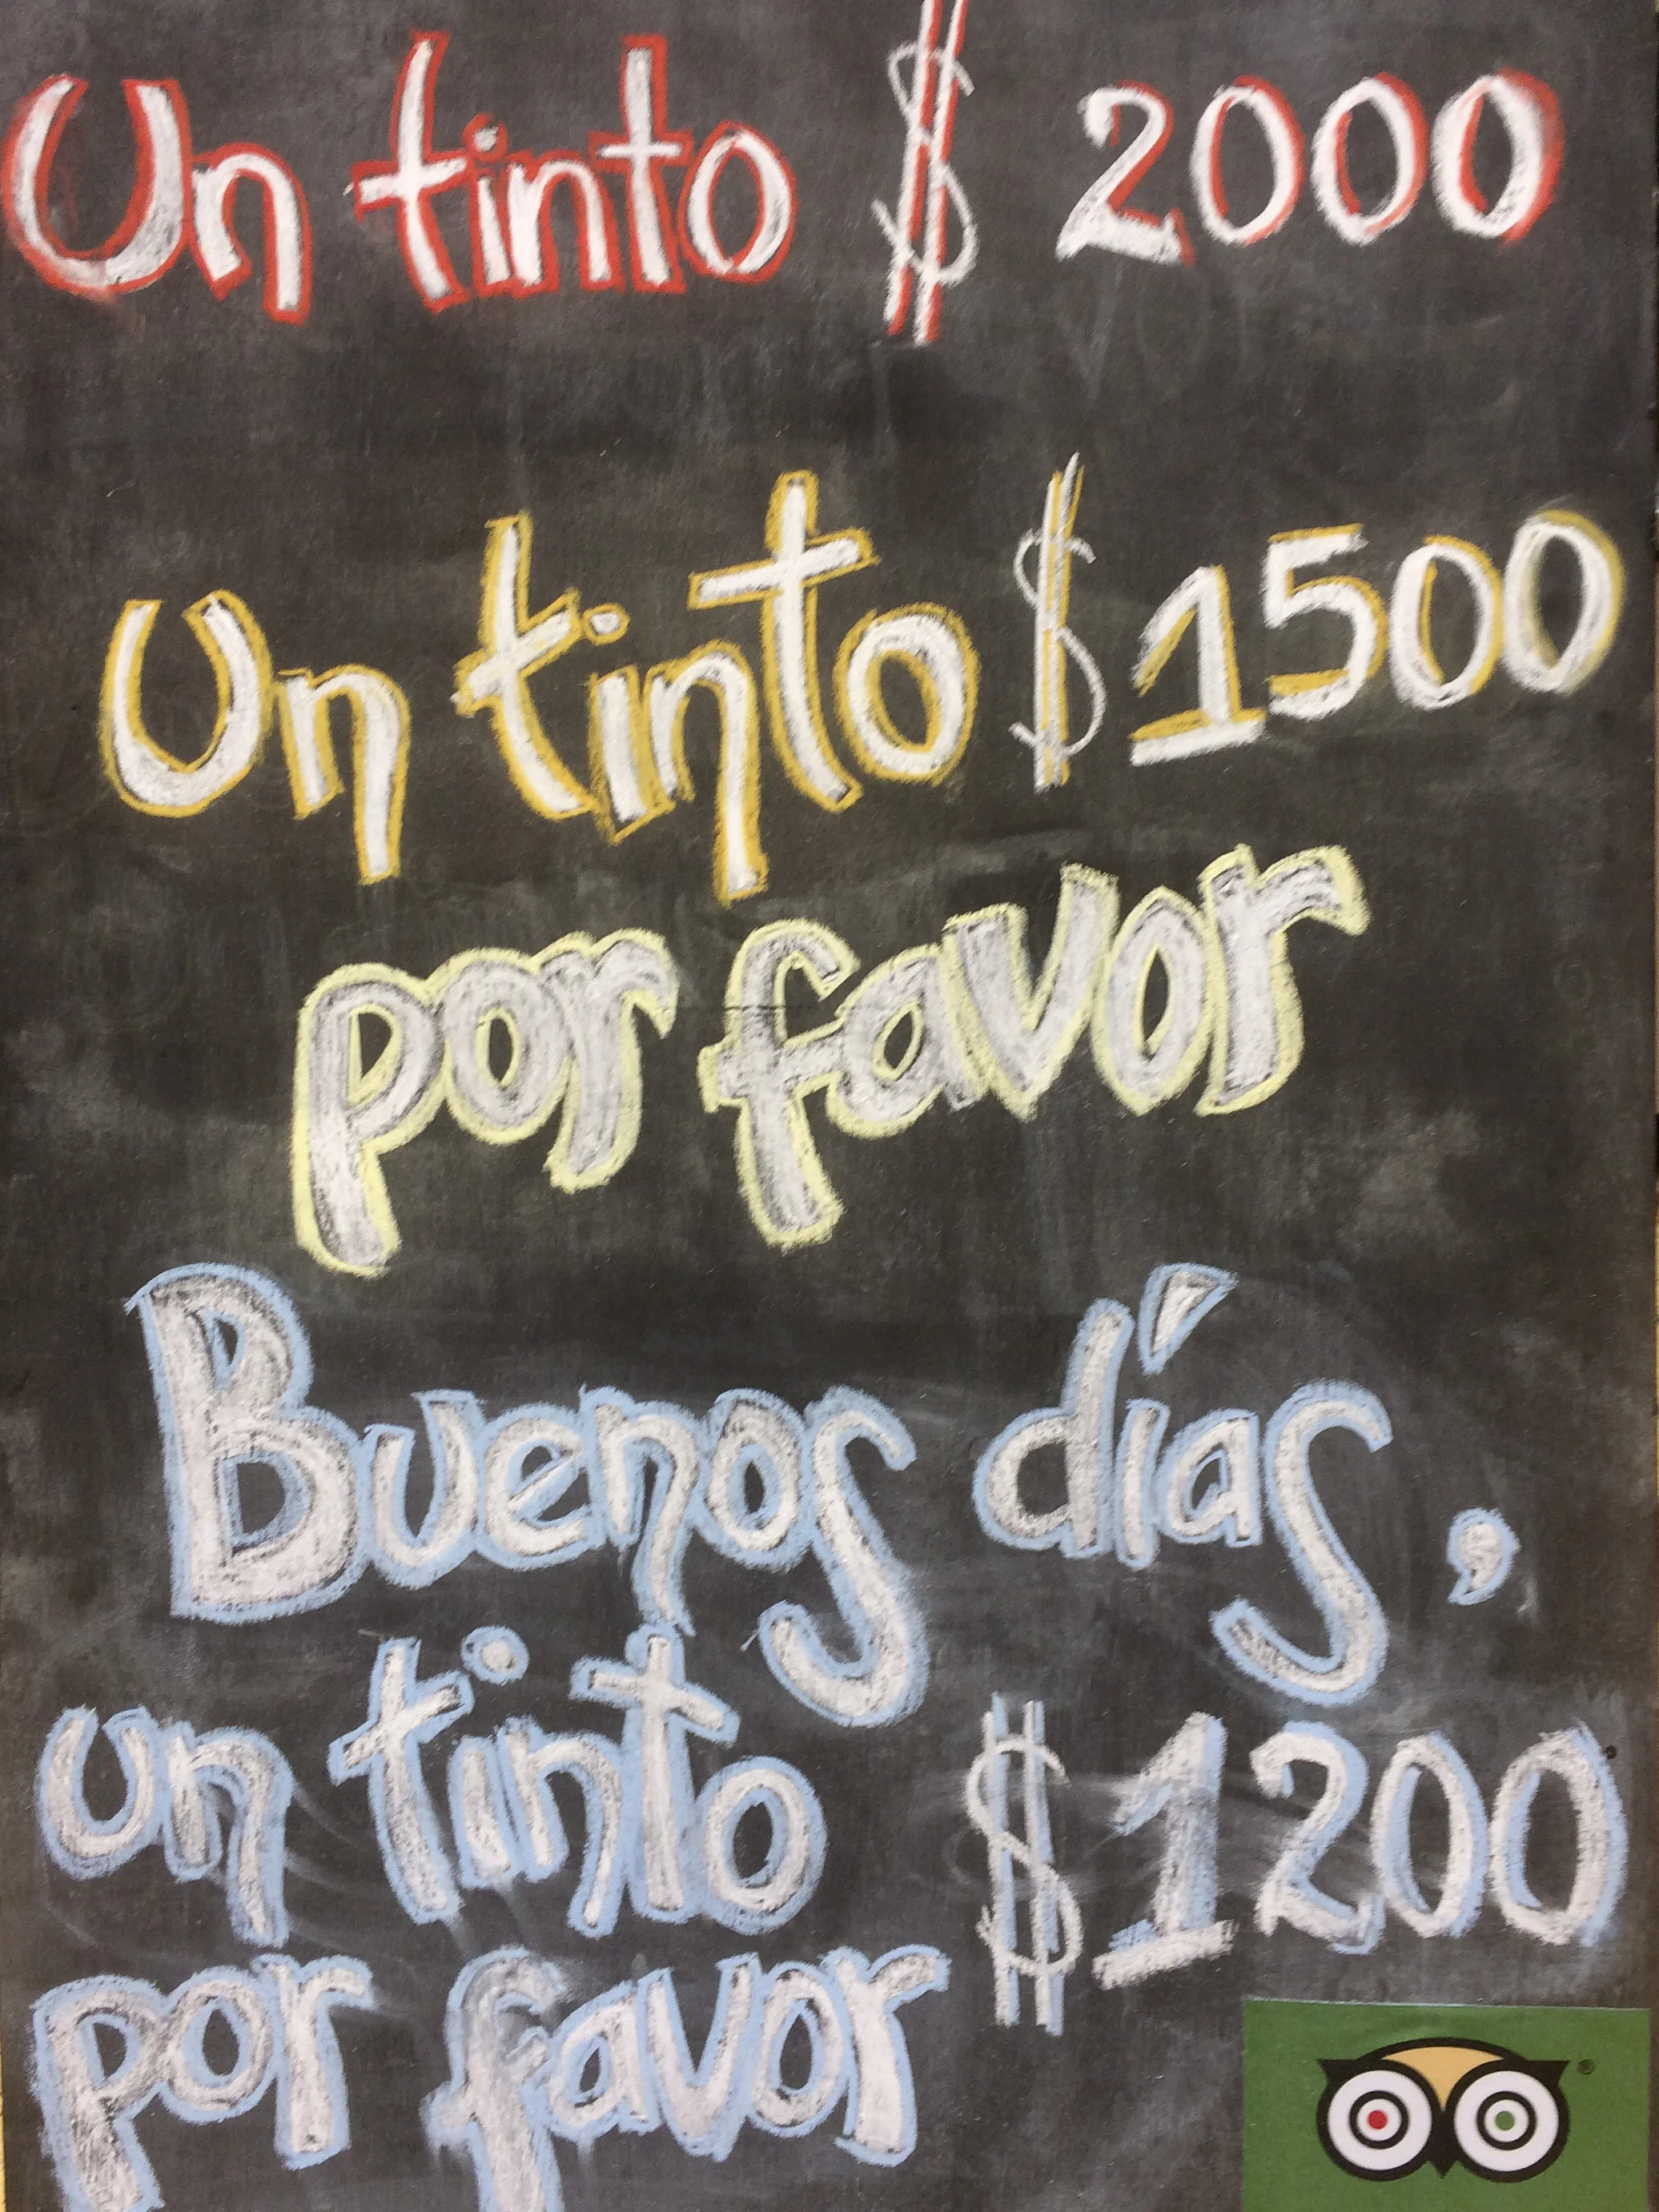 Un tinto $ 2000
Un tinto $ 1500
por favor
Buenos días,
un tinto $ 1200
por favor